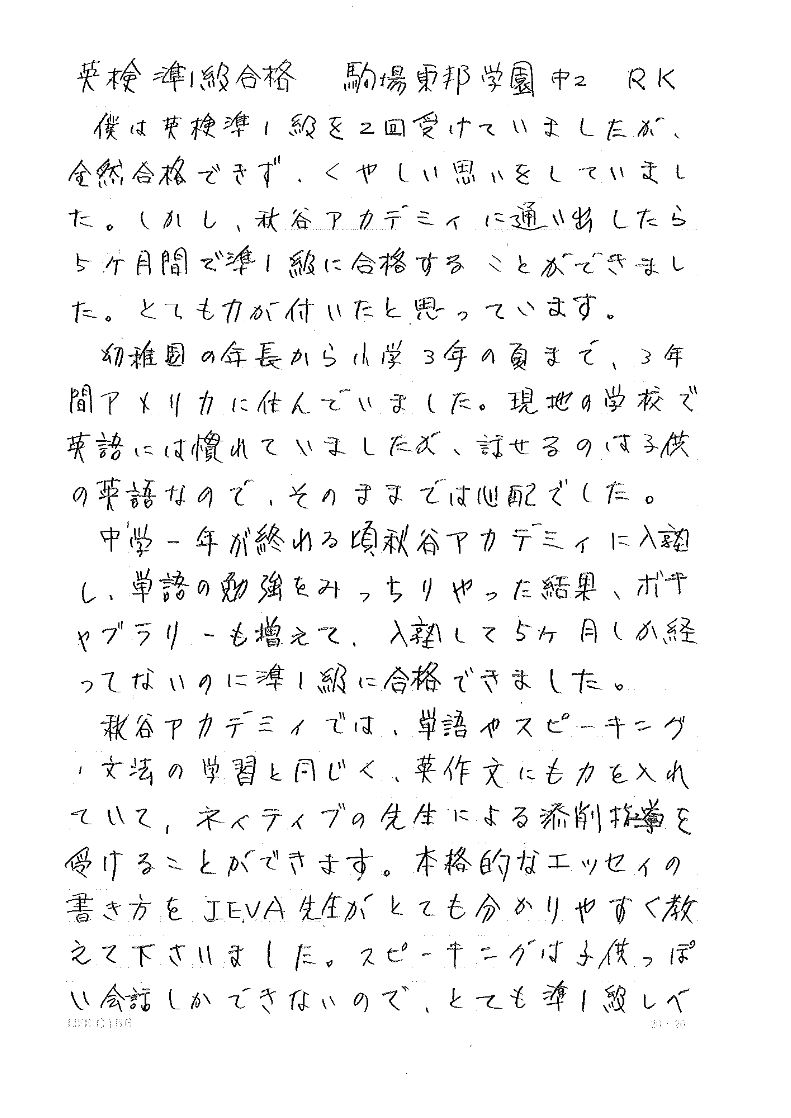 英検準1級合格　駒場東邦学園中2　RK
僕は英検準1級を2回受けていましたが、
全然合格できず、くやしい思いをしていまし
た。しかし、秋谷アカデミィに通い出したら
5ヶ月間で準1級に合格することができまし
た。とても力が付いたと思っています。
幼稚園の年長から小学3年の夏まで、3年
間アメリカに住んでいました。現地の学校で
英語には慣れていましたが、話せるのは子供
の英語なので、そのままでは心配でした。
中学一年が終れる頃秋谷アカデミィに入塾
し、単語の勉強をみっちりやった結果、ボキ
ャブラリーも増えて、入塾して5ヶ月しか経
ってないのに準1級に合格できました。
秋谷アカデミィでは、単語やスピーキング
、文法の学習と同じく、英作文にも力を入れ
ていて、ネイティブの先生による添削指導を
受けることができます。本格的なエッセイの
書き方をJEVA先生がとても分かりやすく教
えて下さいました。スピーキングは子供っぽ
い会話しかできないので、とても準1級レベ